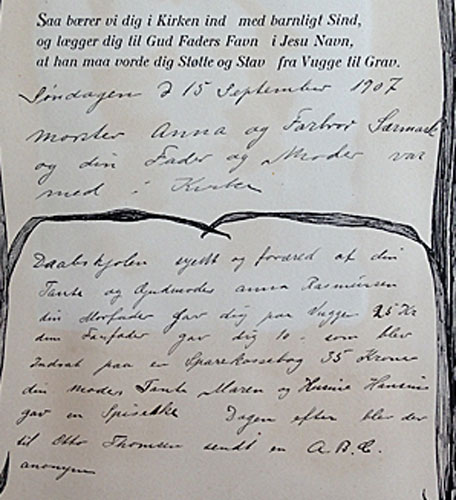 Saa bærer vi dig i Kirken ind med barnligt Sind,
og lægger dig til Gud Faders Favn i Jesu Navn,
at han maa vorde dig Støtte og Stav fra Vugge til Grav.
Søndagen d 15 September 1907
Moster Anna og Farbror Særmark
og din Fader og Moder var
med i Kirken
Daabskjolen syett og foræred af din
Tante og Gudmoder Anna Rasmussen
din Morfader gav dig paa Vuggen 25 Kr
din Farfader gav dig 10. som blev
Indsat paa en Sparekassebog 35 Kroner
din Moders Tante Maren og Hansine
gav en Dagen efter blev der
til Otto Thomsen sendt en A.B.C.
anonym